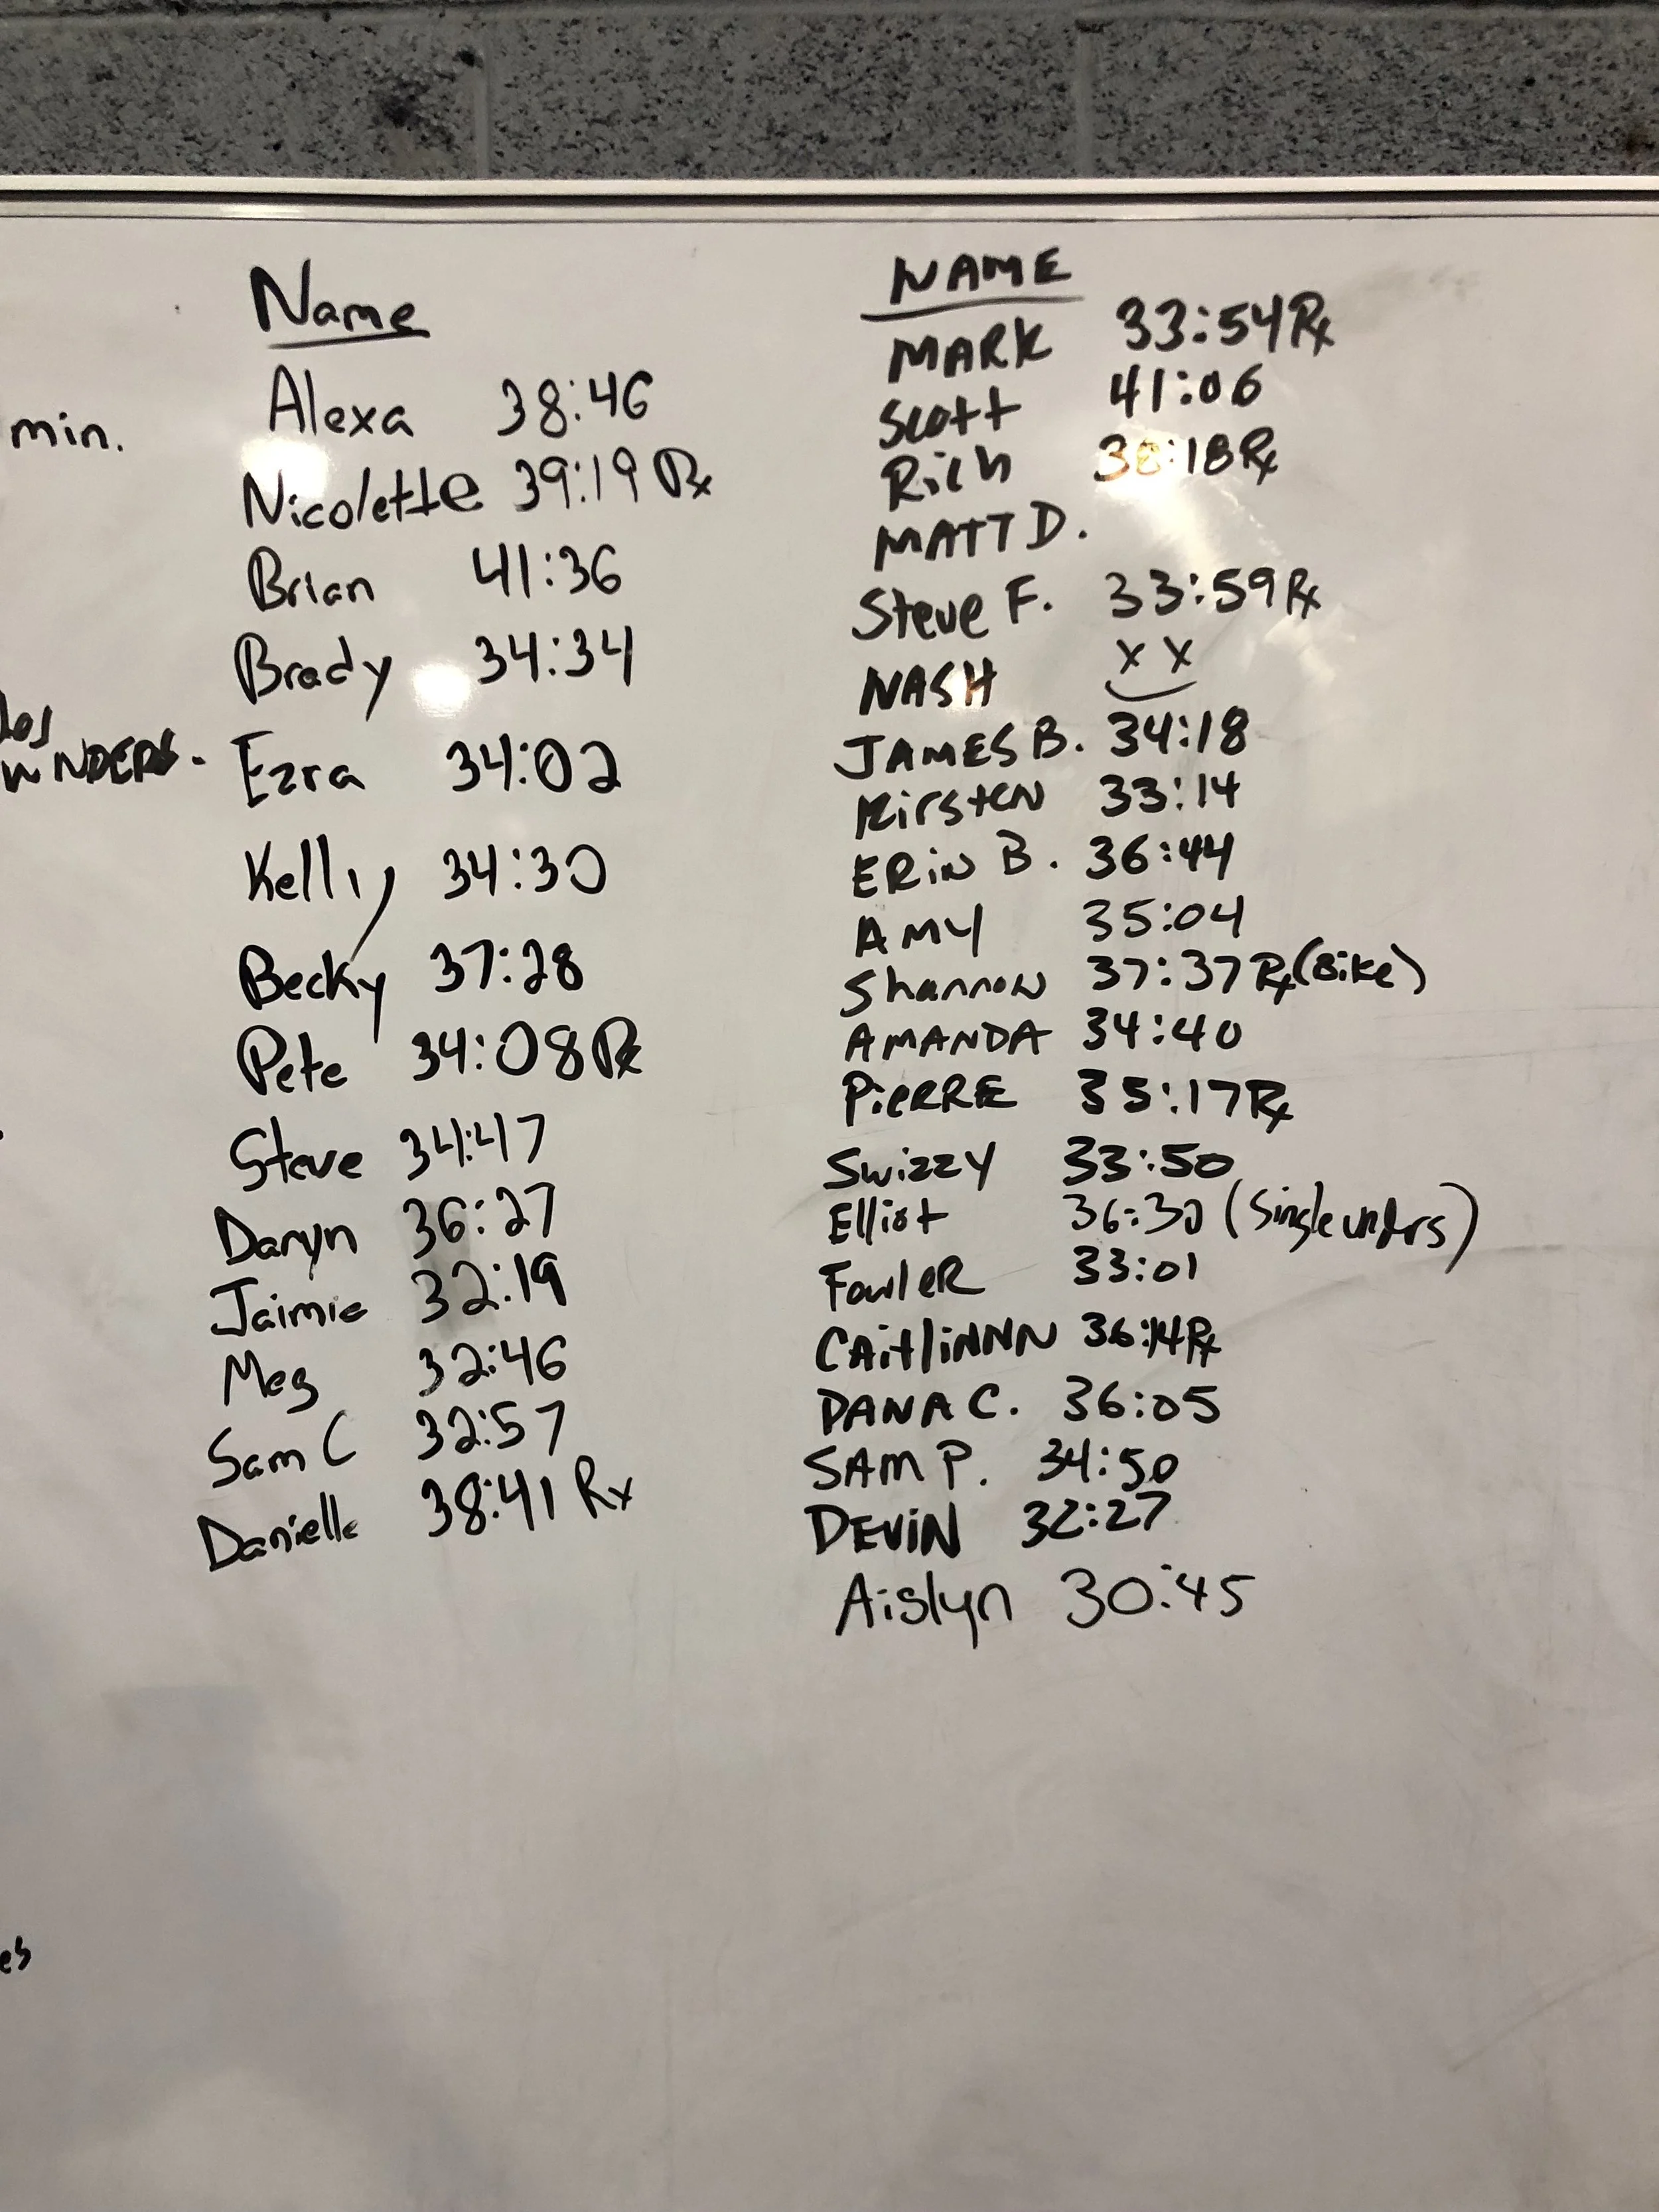 min.
Name
Alexa 38:46
Nicolette 39:19 Rx
Brian 41:36
Brady 34:34
Ezra 34:02
Kelly 34:30
Becky 37:28
Pete 34:08 Rx
Steve 34:47
Daryn 36:27
Jaimie 32:19
Meg 32:46
Sam C 32:57
Danielle 38:41 Rx
NAME
MARK 33:54 Rx
Scott 41:06
Rich 38:18 Rx
MATT D.
Steve F. 33:59 Rx
NASH x x
JAMES B. 34:18
Kirsten 33:14
ERiN B. 36:44
AMY 35:04
Shannon 37:37 Rx (Bike)
AMANDA 34:40
PieRRE 35:17 Rx
Swizzy 33:50
Elliot 36:30 (Single unders)
FowleR 33:01
CAitliNNN 36:14 Rx
DANA C. 36:05
SAM P. 34:50
DEViN 32:27
Aislyn 30:45